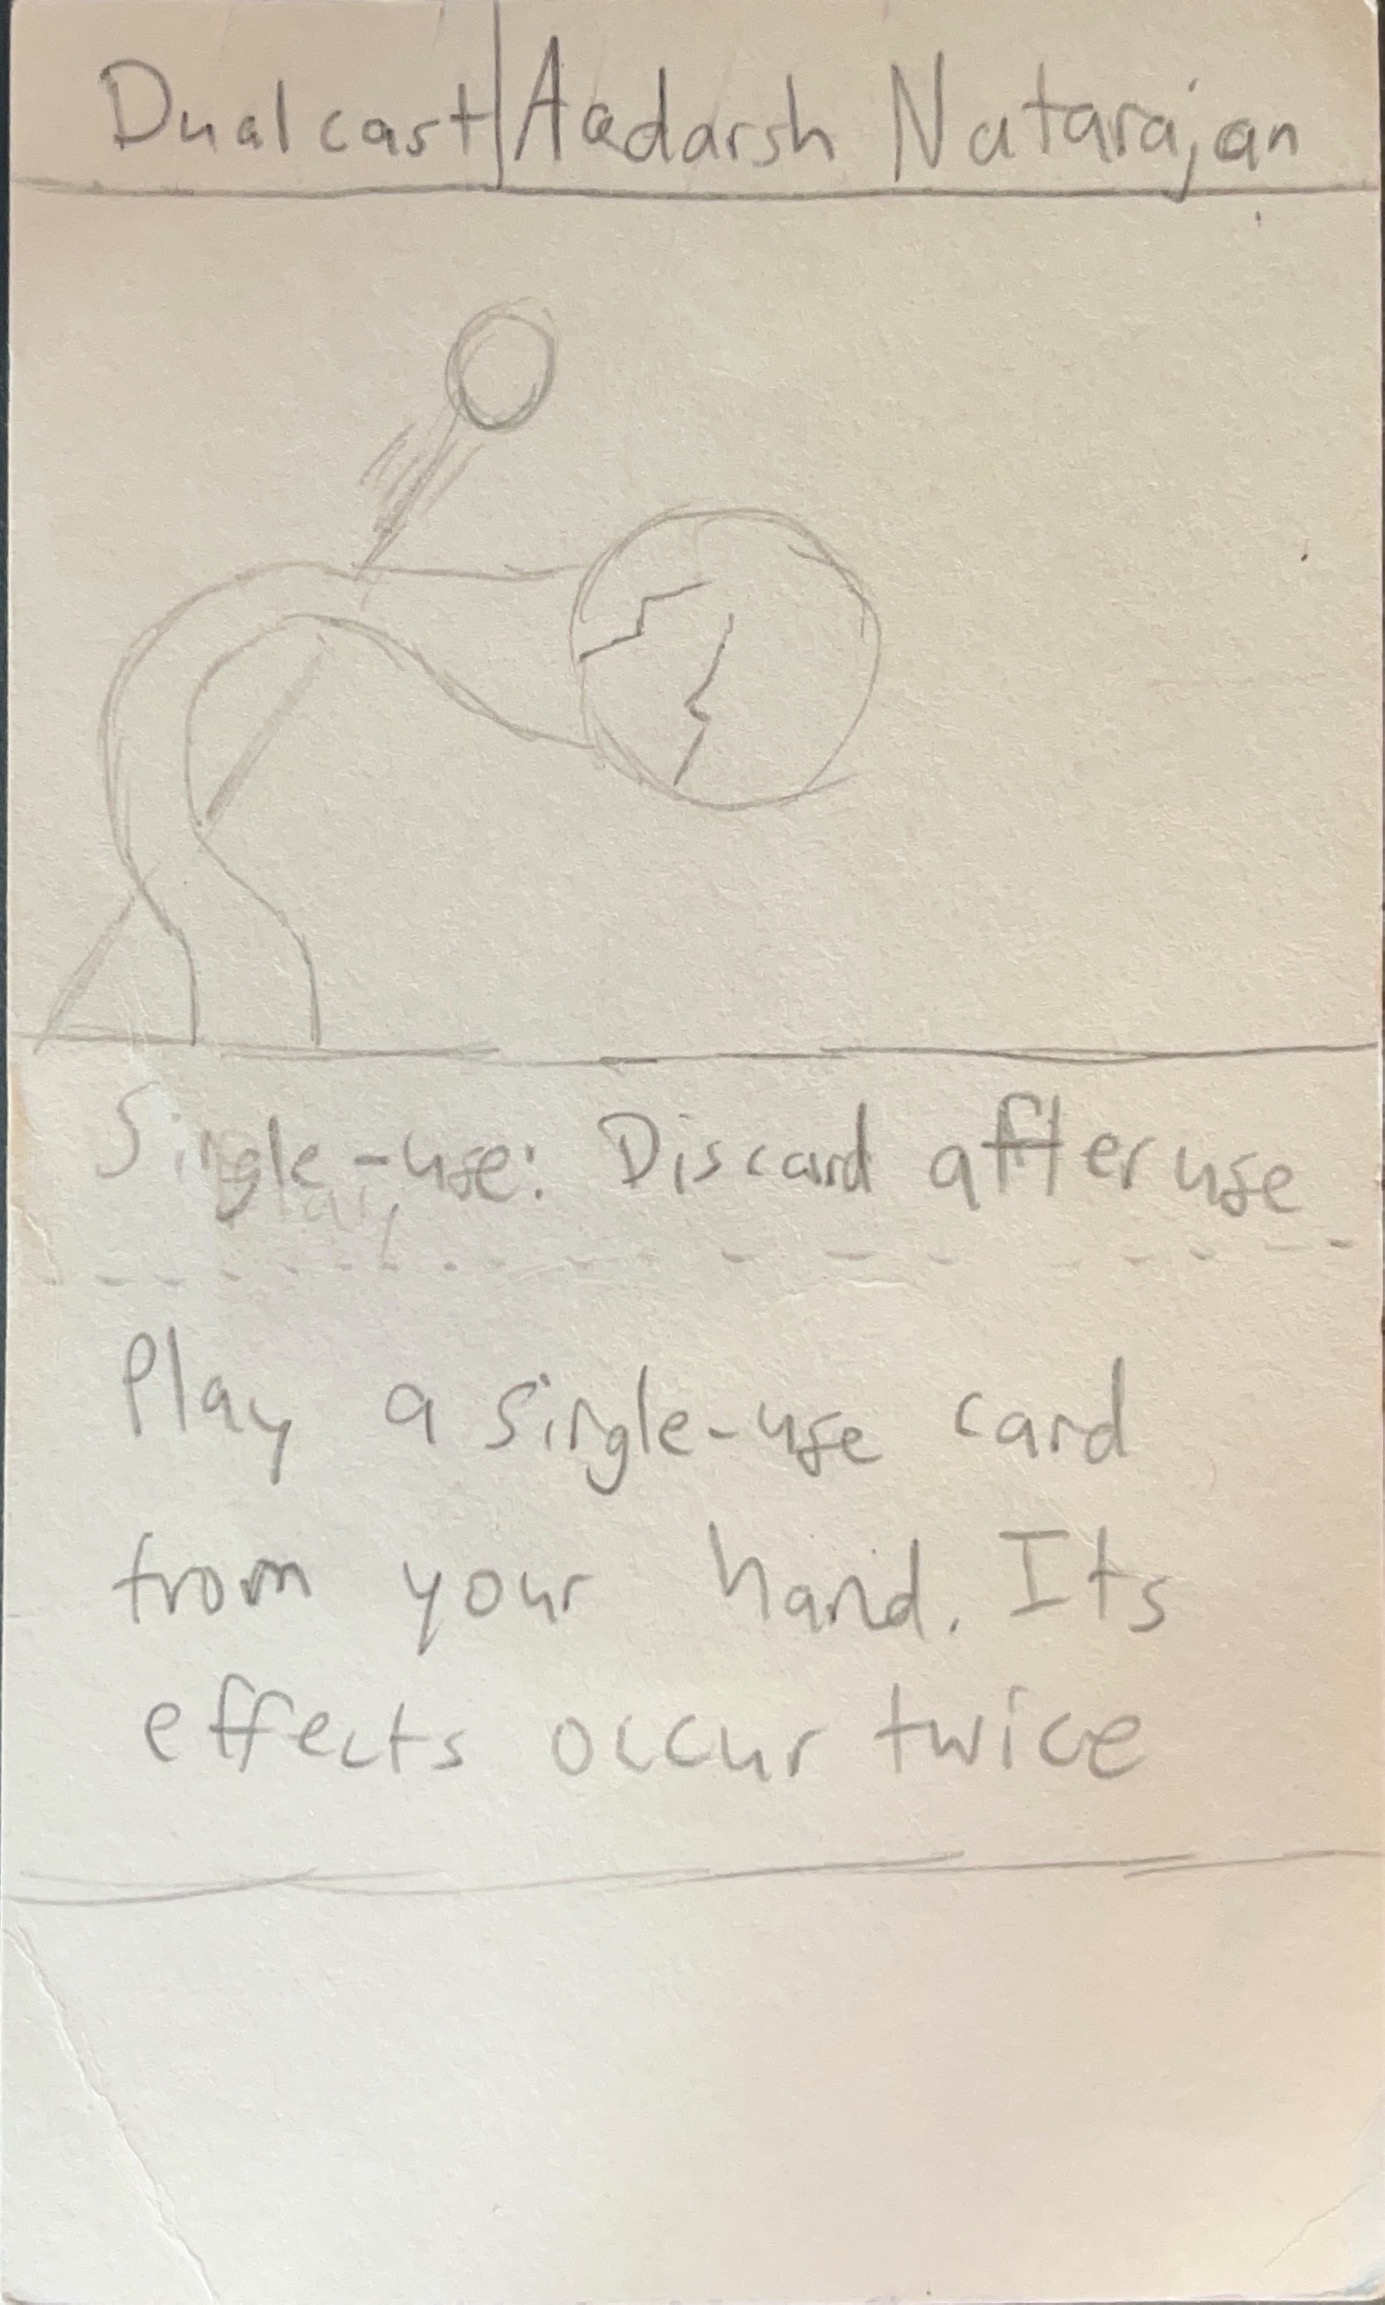 Dualcast|Aadarsh Natarajan
Single-use: Discard after use
Play a single-use card
from your hand. Its
effects occur twice